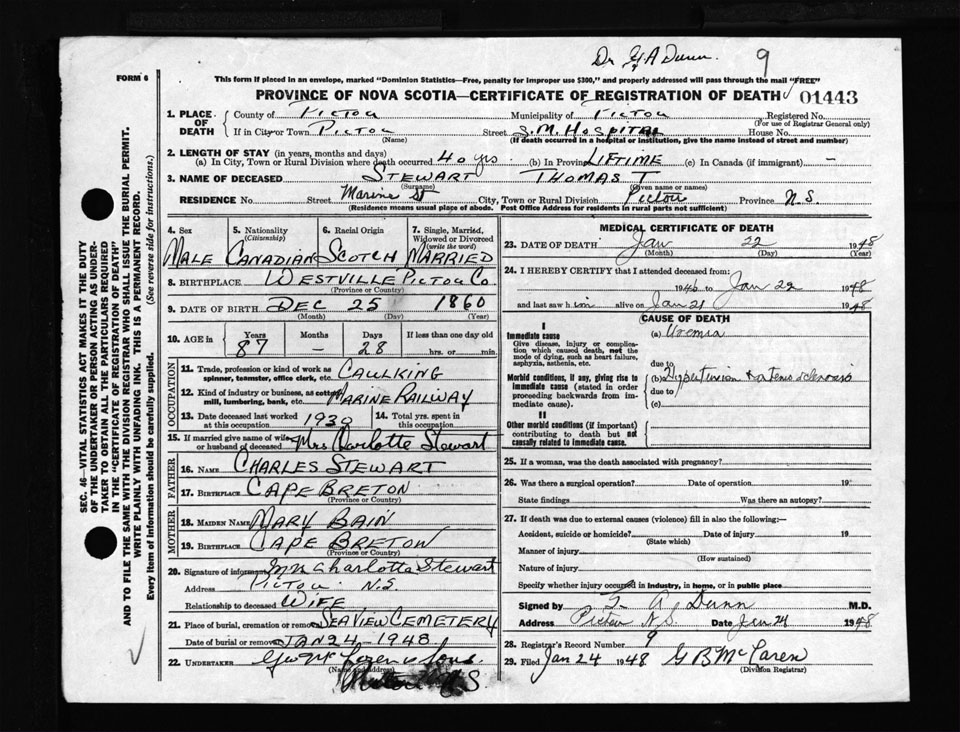 Dr G A Dunn 9
FORM 6
This form if placed in an envelope, marked "Dominion Statistics—Free, penalty for improper use $300," and properly addressed will pass through the mail "FREE"
PROVINCE OF NOVA SCOTIA—CERTIFICATE OF REGISTRATION OF DEATH 01443
1. PLACE OF DEATH { County of Pictou Municipality of Pictou Registered No.
(For use of Registrar General only)
If in City or Town Pictou Street S.M. Hospital House No.
(Name) (If death occurred in a hospital or institution, give the name instead of street and number)
2. LENGTH OF STAY (in years, months and days)
(a) In City, Town or Rural Division where death occurred 40 yrs. (b) In Province LIFTIME (c) In Canada (if immigrant) —
3. NAME OF DECEASED STEWART THOMAS T
(Surname) (Given name or names)
RESIDENCE No. Street Marine St City, Town or Rural Division Pictou Province N.S.
(Residence means usual place of abode. Post Office Address for residents in rural parts not sufficient)
4. Sex 5. Nationality (Citizenship) 6. Racial Origin 7. Single, Married, Widowed or Divorced (write the word)
MALE CANADIAN SCOTCH MARRIED
8. BIRTHPLACE WESTVILLE PICTOU CO.
(Province or Country)
9. DATE OF BIRTH DEC 25 1860
(Month) (Day) (Year)
10. AGE in { Years Months Days If less than one day old
87 — 28 hrs. or min.
OCCUPATION
11. Trade, profession or kind of work as spinner, teamster, office clerk, etc. CAULKING
12. Kind of industry or business, as cotton mill, lumbering, bank, etc. MARINE RAILWAY
13. Date deceased last worked at this occupation 1930 14. Total yrs. spent in this occupation
15. If married give name of wife or husband of deceased Mrs Carlotte Stewart
FATHER
16. NAME CHARLES STEWART
17. BIRTHPLACE CAPE BRETON
(Province or Country)
MOTHER
18. MAIDEN NAME MARY BAIN
19. BIRTHPLACE CAPE BRETON
(Province or Country)
20. Signature of informant Mrs Charlotte Stewart
Address PICTOU N.S.
Relationship to deceased WIFE
21. Place of burial, cremation or removal SEAVIEW CEMETERY
Date of burial or removal JAN 24 - 1948
22. UNDERTAKER Sons.
(Name and Address)
N S.
MEDICAL CERTIFICATE OF DEATH
23. DATE OF DEATH Jan 22 1948
(Month) (Day) (Year)
24. I HEREBY CERTIFY that I attended deceased from:
1946 to Jan 22 1948
and last saw him alive on Jan 21 1948
CAUSE OF DEATH
I
Immediate cause (a) Uremia
Give disease, injury or complication which caused death, not the mode of dying, such as heart failure, asphyxia, asthenia, etc. due to
Morbid conditions, if any, giving rise to immediate cause (stated in order proceeding backwards from immediate cause). (b) Hypertension
due to
(c)
II
Other morbid conditions (if important) contributing to death but not causally related to immediate cause.
25. If a woman, was the death associated with pregnancy?
26. Was there a surgical operation? Date of operation 19
State findings Was there an autopsy?
27. If death was due to external causes (violence) fill in also the following:—
Accident, suicide or homicide? Date of injury 19
(State which)
Manner of injury
(How sustained)
Nature of injury
Specify whether injury occurred in industry, in home, or in public place
Signed by G A Dunn M.D.
Address Pictou N.S. Date Jan 24 1948
28. Registrar's Record Number 9
29. Filed Jan 24 1948 G B McLaren
(Division Registrar)
SEC. 46—VITAL STATISTICS ACT MAKES IT THE DUTY
OF THE UNDERTAKER OR PERSON ACTING AS UNDER-
TAKER TO OBTAIN ALL THE PARTICULARS REQUIRED
IN THE "CERTIFICATE OF REGISTRATION OF DEATH"
AND TO FILE THE SAME WITH THE DIVISION REGISTRAR WHO SHALL ISSUE THE BURIAL PERMIT.
WRITE PLAINLY WITH UNFADING INK. THIS IS A PERMANENT RECORD.
Every item of information should be carefully supplied. (See reverse side for instructions.)